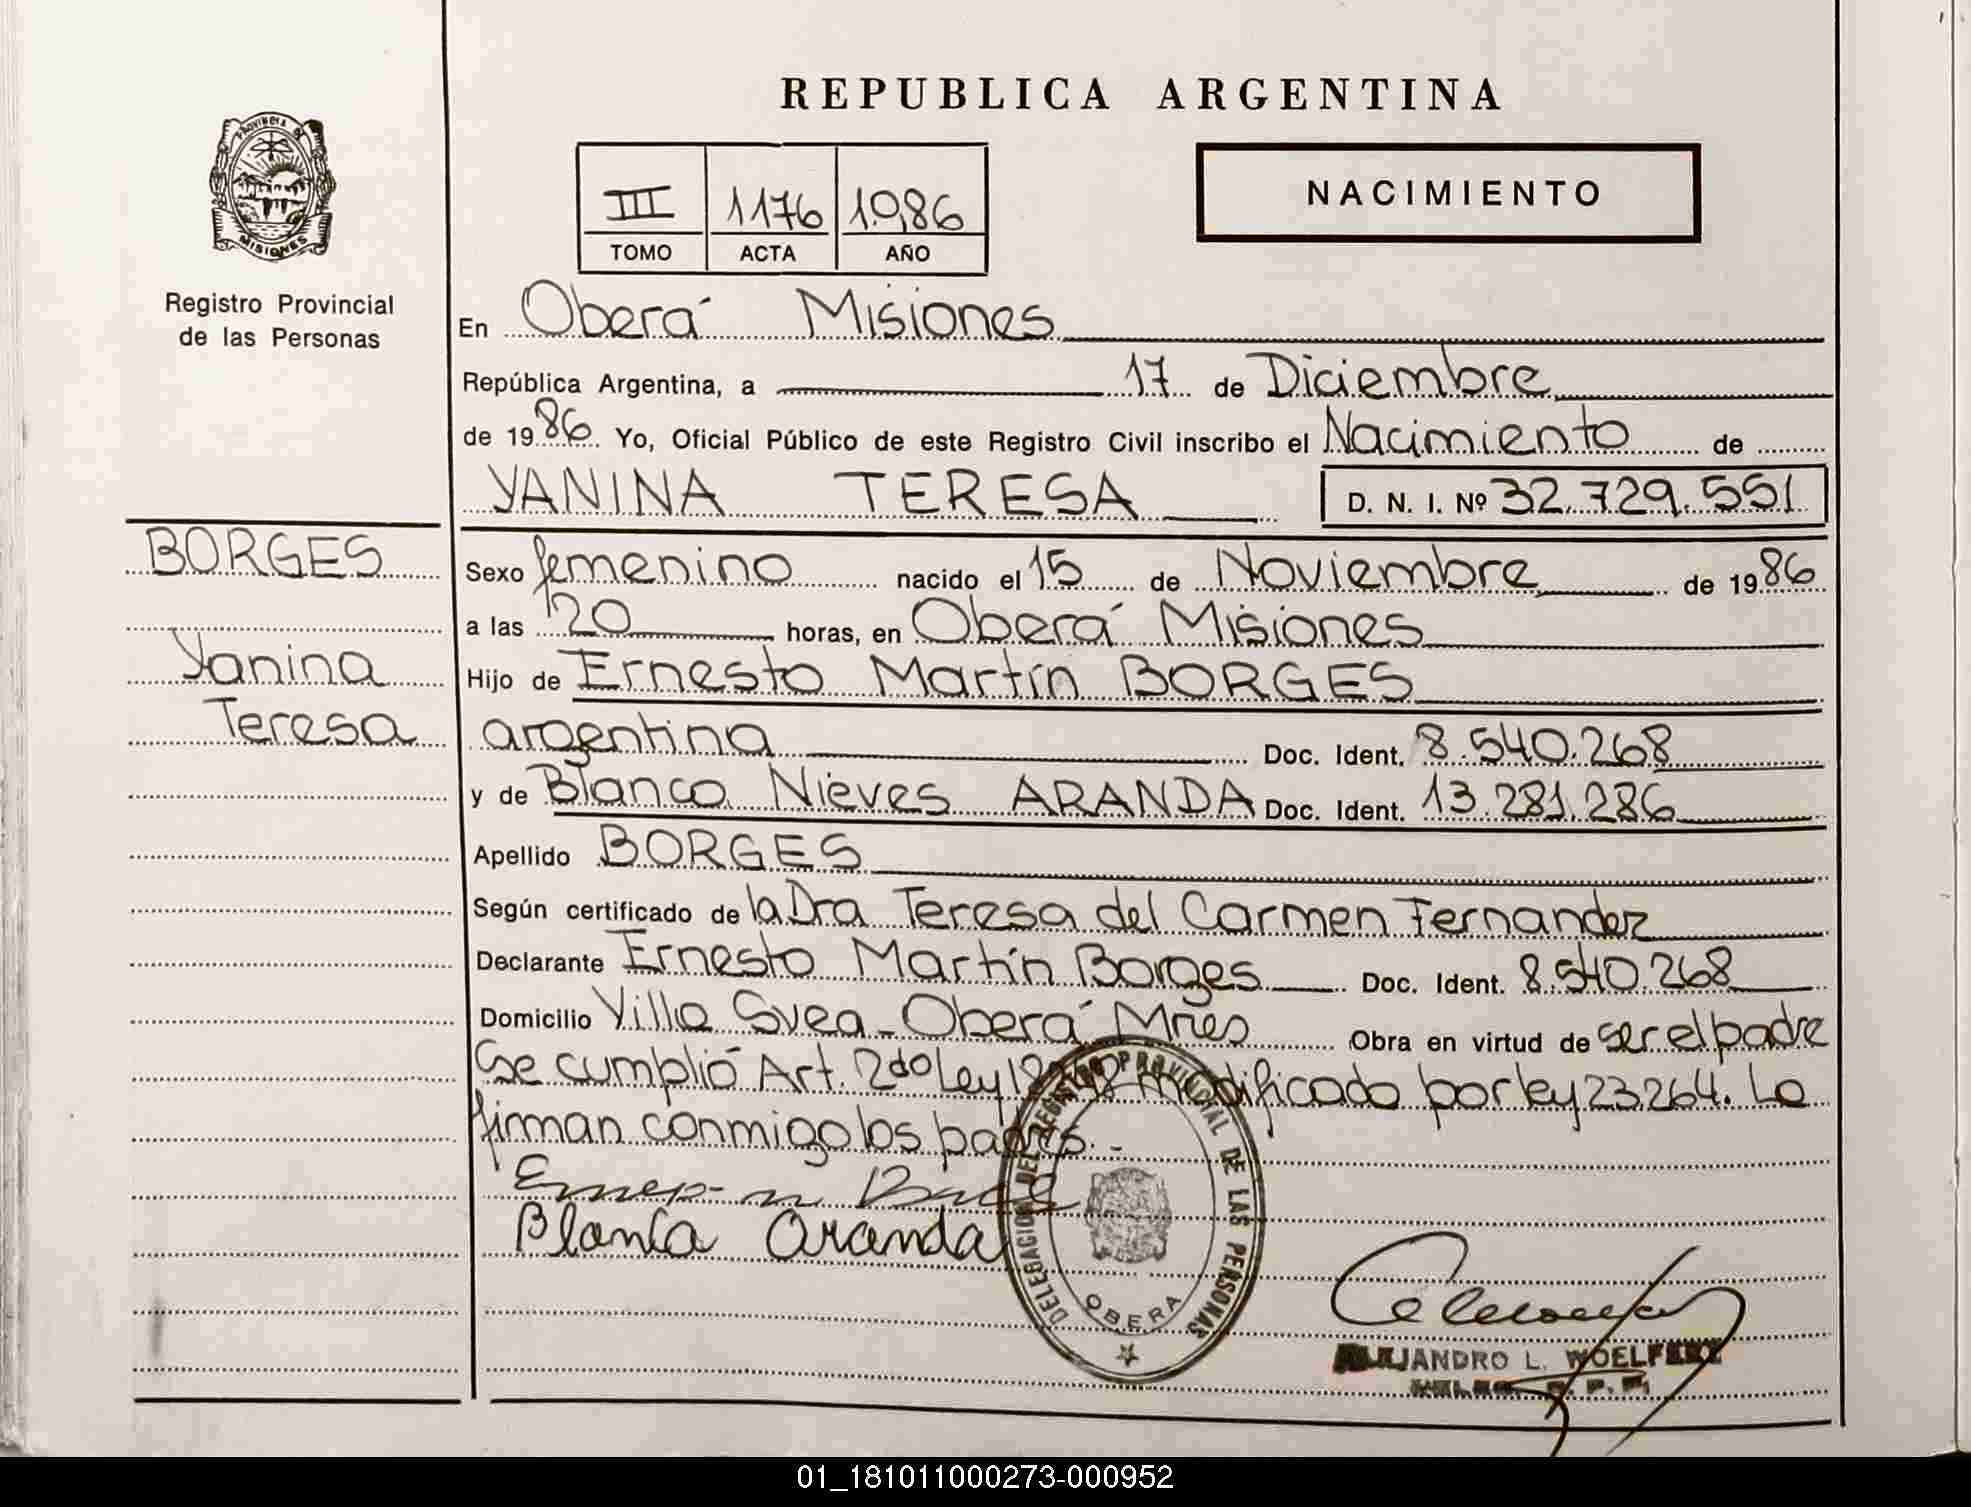 REPUBLICA ARGENTINA
PROVINCIA DE
MISIONES
Registro Provincial
de las Personas
III 1176 1986
TOMO ACTA AÑO
NACIMIENTO
En Oberá Misiones
República Argentina, a 17 de Diciembre
de 1986 Yo, Oficial Público de este Registro Civil inscribo el Nacimiento de
YANINA TERESA D. N. I. Nº 32.729.551
BORGES
Yanina
Teresa
Sexo femenino nacido el 15 de Noviembre de 1986
a las 20 horas, en Oberá Misiones
Hijo de Ernesto Martín BORGES
argentina Doc. Ident. 8.540.268
y de Blanca Nieves ARANDA Doc. Ident. 13.281.286
Apellido BORGES
Según certificado de la Dra Teresa del Carmen Fernandez
Declarante Ernesto Martín Borges Doc. Ident. 8.540.268
Domicilio Villa Svea - Oberá Mnes Obra en virtud de ser el padre
Se cumplió Art. 2do Ley modificado por ley 23.264. La
firman conmigo los padres.-
Blanca Aranda
DELEGACION DEL REGISTRO PROVINCIAL DE LAS PERSONAS
OBERA
ALEJANDRO L.
01_181011000273-000952